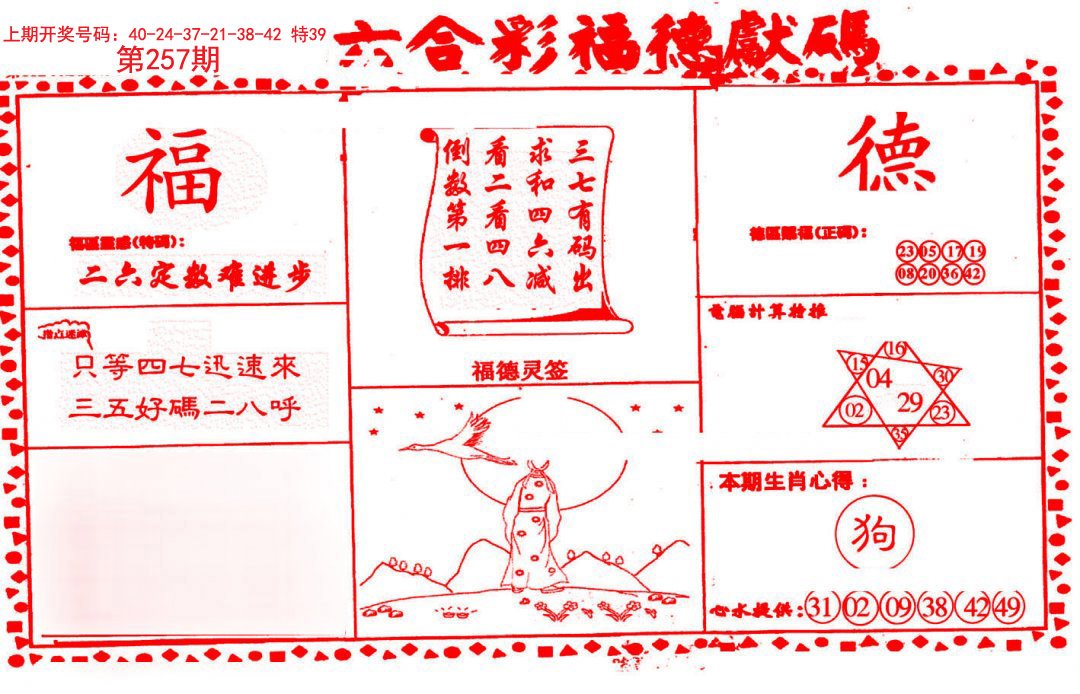 上期开奖号码：40-24-37-21-38-42 特39
第257期
六合彩福德獻碼
福
福區靈感(特碼)：
二六定数难进步
指点迷津
只等四七迅速來
三五好碼二八呼
三七有码出
求和四六减
看二看四八
倒数第一排
福德灵签
德
德區賜福(正碼)：
23 05 17 19
08 20 36 42
電腦計算特推
16
15
04
30
29
02
23
35
本期生肖心得：
狗
心水提供：31 02 09 38 42 49